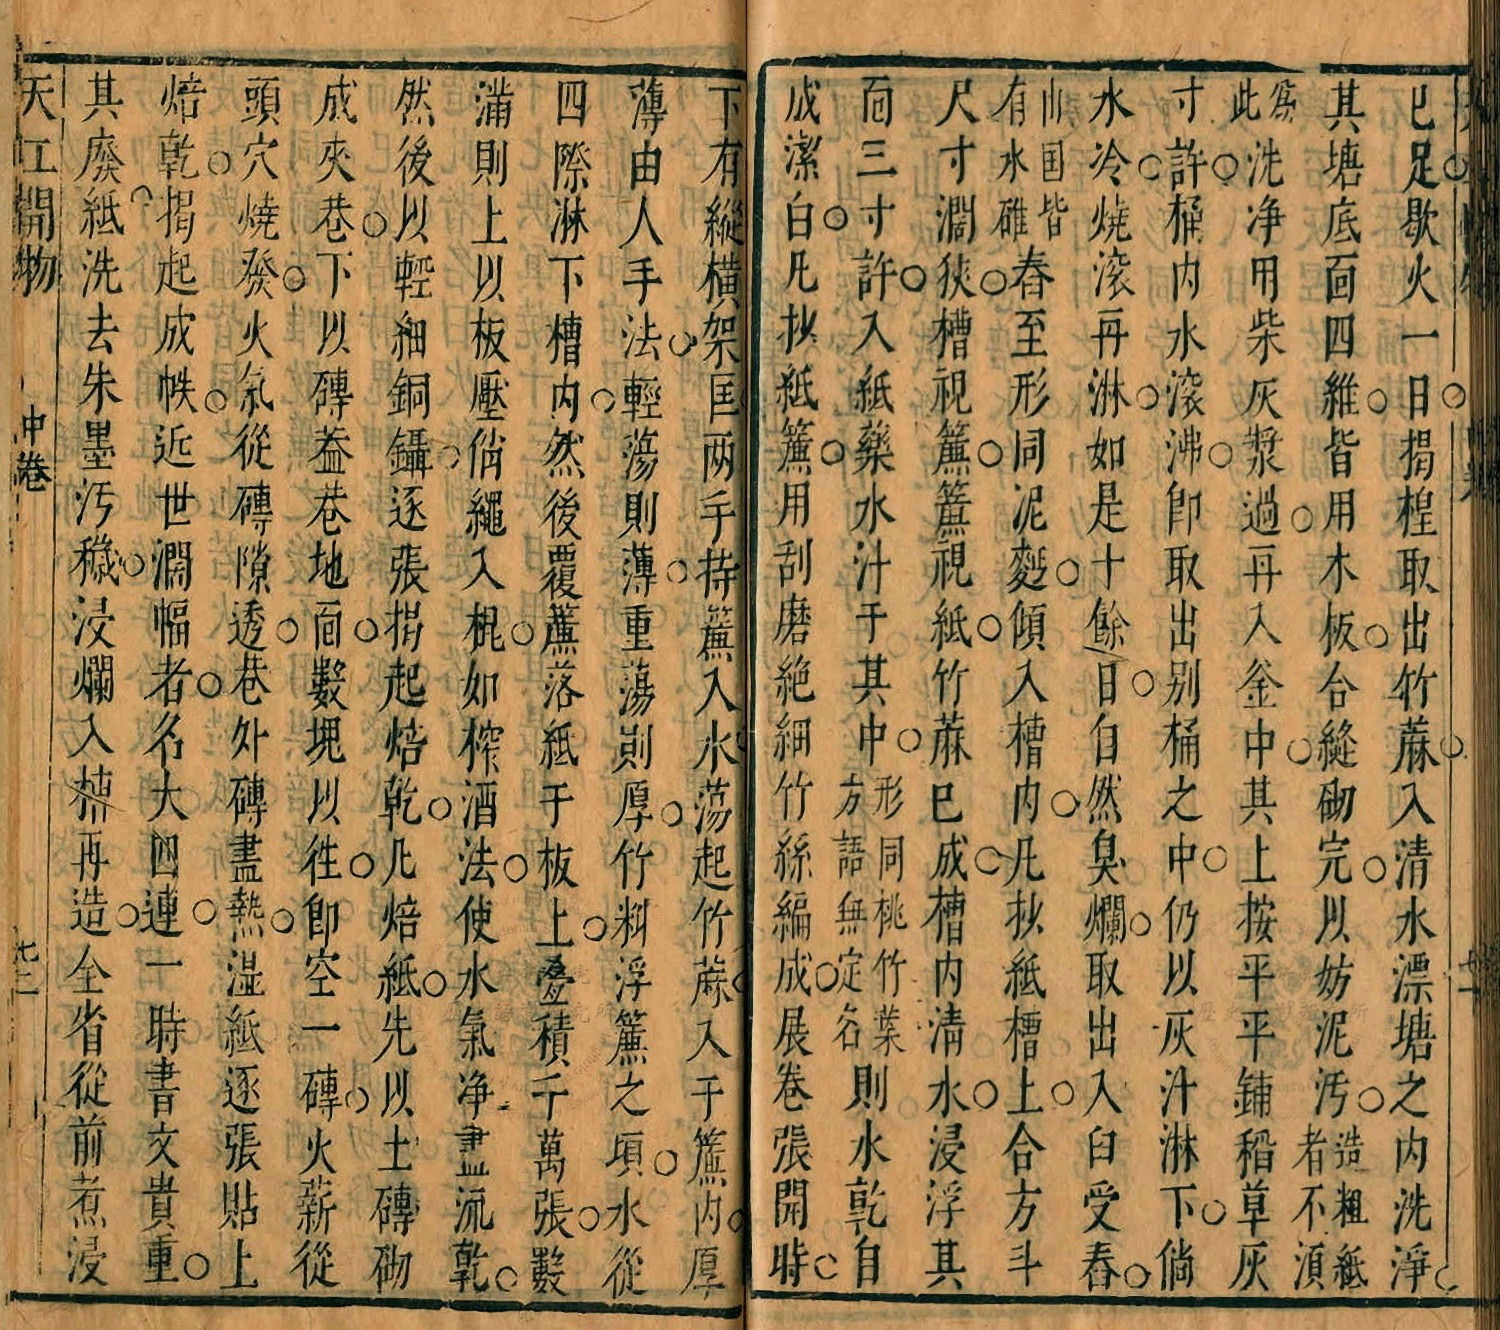 已足歇火一日揭楻取出竹蔴入清水漂塘之内洗淨
其塘底面四維皆用木板合縫砌完以妨泥汚造粗紙者不湏
爲此洗净用柴灰漿過再入釜中其上按平平鋪稻草灰
寸許桶内水滚沸卽取出别桶之中仍以灰汁淋下倘
水冷燒滚再淋如是十餘日自然臭爛取出入臼受舂
山国皆有水碓舂至形同泥麪傾入槽内凡抄紙槽上合方斗
尺寸濶狹槽視簾簾視紙竹蔴已成槽内清水浸浮其
面三寸許入紙藥水汁于其中形同桃竹葉方語無定名則水乾自
成潔白凡抄紙簾用刮磨絶細竹絲編成展卷張開時
下有縱横架匡兩手持簾入水蕩起竹蔴入于簾内厚
薄由人手法輕蕩則薄重蕩則厚竹料浮簾之頃水從
四際淋下槽内然後覆簾落紙于板上疊積千萬張數
滿則上以板壓俏繩入棍如榨酒法使水氣净盡流乾
然後以輕細銅鑷逐張揭起焙乾凡焙紙先以土磚砌
成夾巷下以磚葢巷地面數塊以徃卽空一磚火薪從
頭穴燒發火氣從磚隙透巷外磚盡熱湿紙逐張貼上
焙乾揭起成帙近世濶幅者名大四連一時書文貴重
其廢紙洗去朱墨汚穢浸爛入槽再造全省從前煮浸
天工開物 中卷 七二